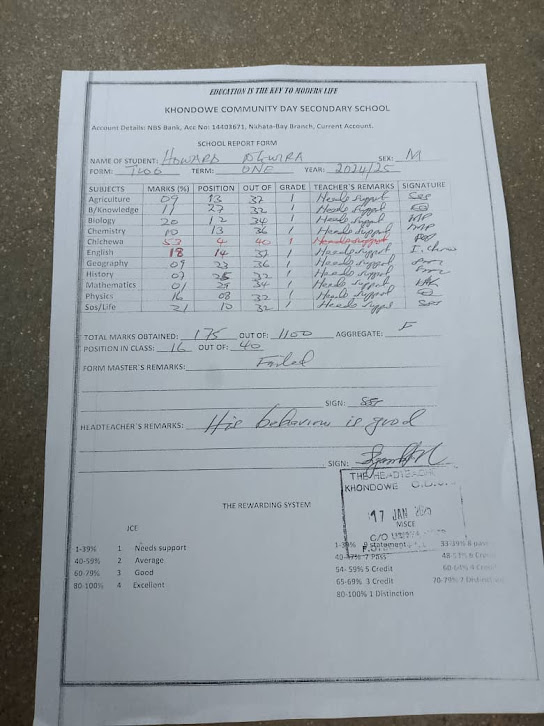 EDUCATION IS THE KEY TO MODERN LIFE
KHONDOWE COMMUNITY DAY SECONDARY SCHOOL
Account Details: NBS Bank, Acc No: 14403671, Nkhata-Bay Branch, Current Account.
SCHOOL REPORT FORM
NAME OF STUDENT: HOWARD SEX: M
FORM: TWO TERM: ONE YEAR: 2024/25
SUBJECTS MARKS (%) POSITION OUT OF GRADE TEACHER'S REMARKS SIGNATURE
Agriculture 09 13 32 1 Needs support
B/Knowledge 11 27 32 1 Needs support
Biology 20 12 34 1 Needs support
Chemistry 10 13 36 1 Needs support
Chichewa 53 4 40 1 Needs support
English 18 14 32 1 Needs support
Geography 09 23 36 1 Needs support
History 07 25 32 1 Needs support
Mathematics 01 29 34 1 Needs support
Physics 16 08 32 1 Needs support
Sos/Life 21 10 32 1 Needs support
TOTAL MARKS OBTAINED: 175 OUT OF: 1100 AGGREGATE: F
POSITION IN CLASS: 16 OUT OF: 40
FORM MASTER'S REMARKS: Failed
SIGN:
HEADTEACHER'S REMARKS: His behaviour is good
SIGN:
THE HEADTEACHER
KHONDOWE C.D.S.S
17 JAN
THE REWARDING SYSTEM
JCE MSCE
1-39% 1 Needs support
40-59% 2 Average
60-79% 3 Good
80-100% 4 Excellent
1-39% 9 statement
40-47% 7 Pass
54- 59% 5 Credit
65-69% 3 Credit
80-100% 1 Distinction